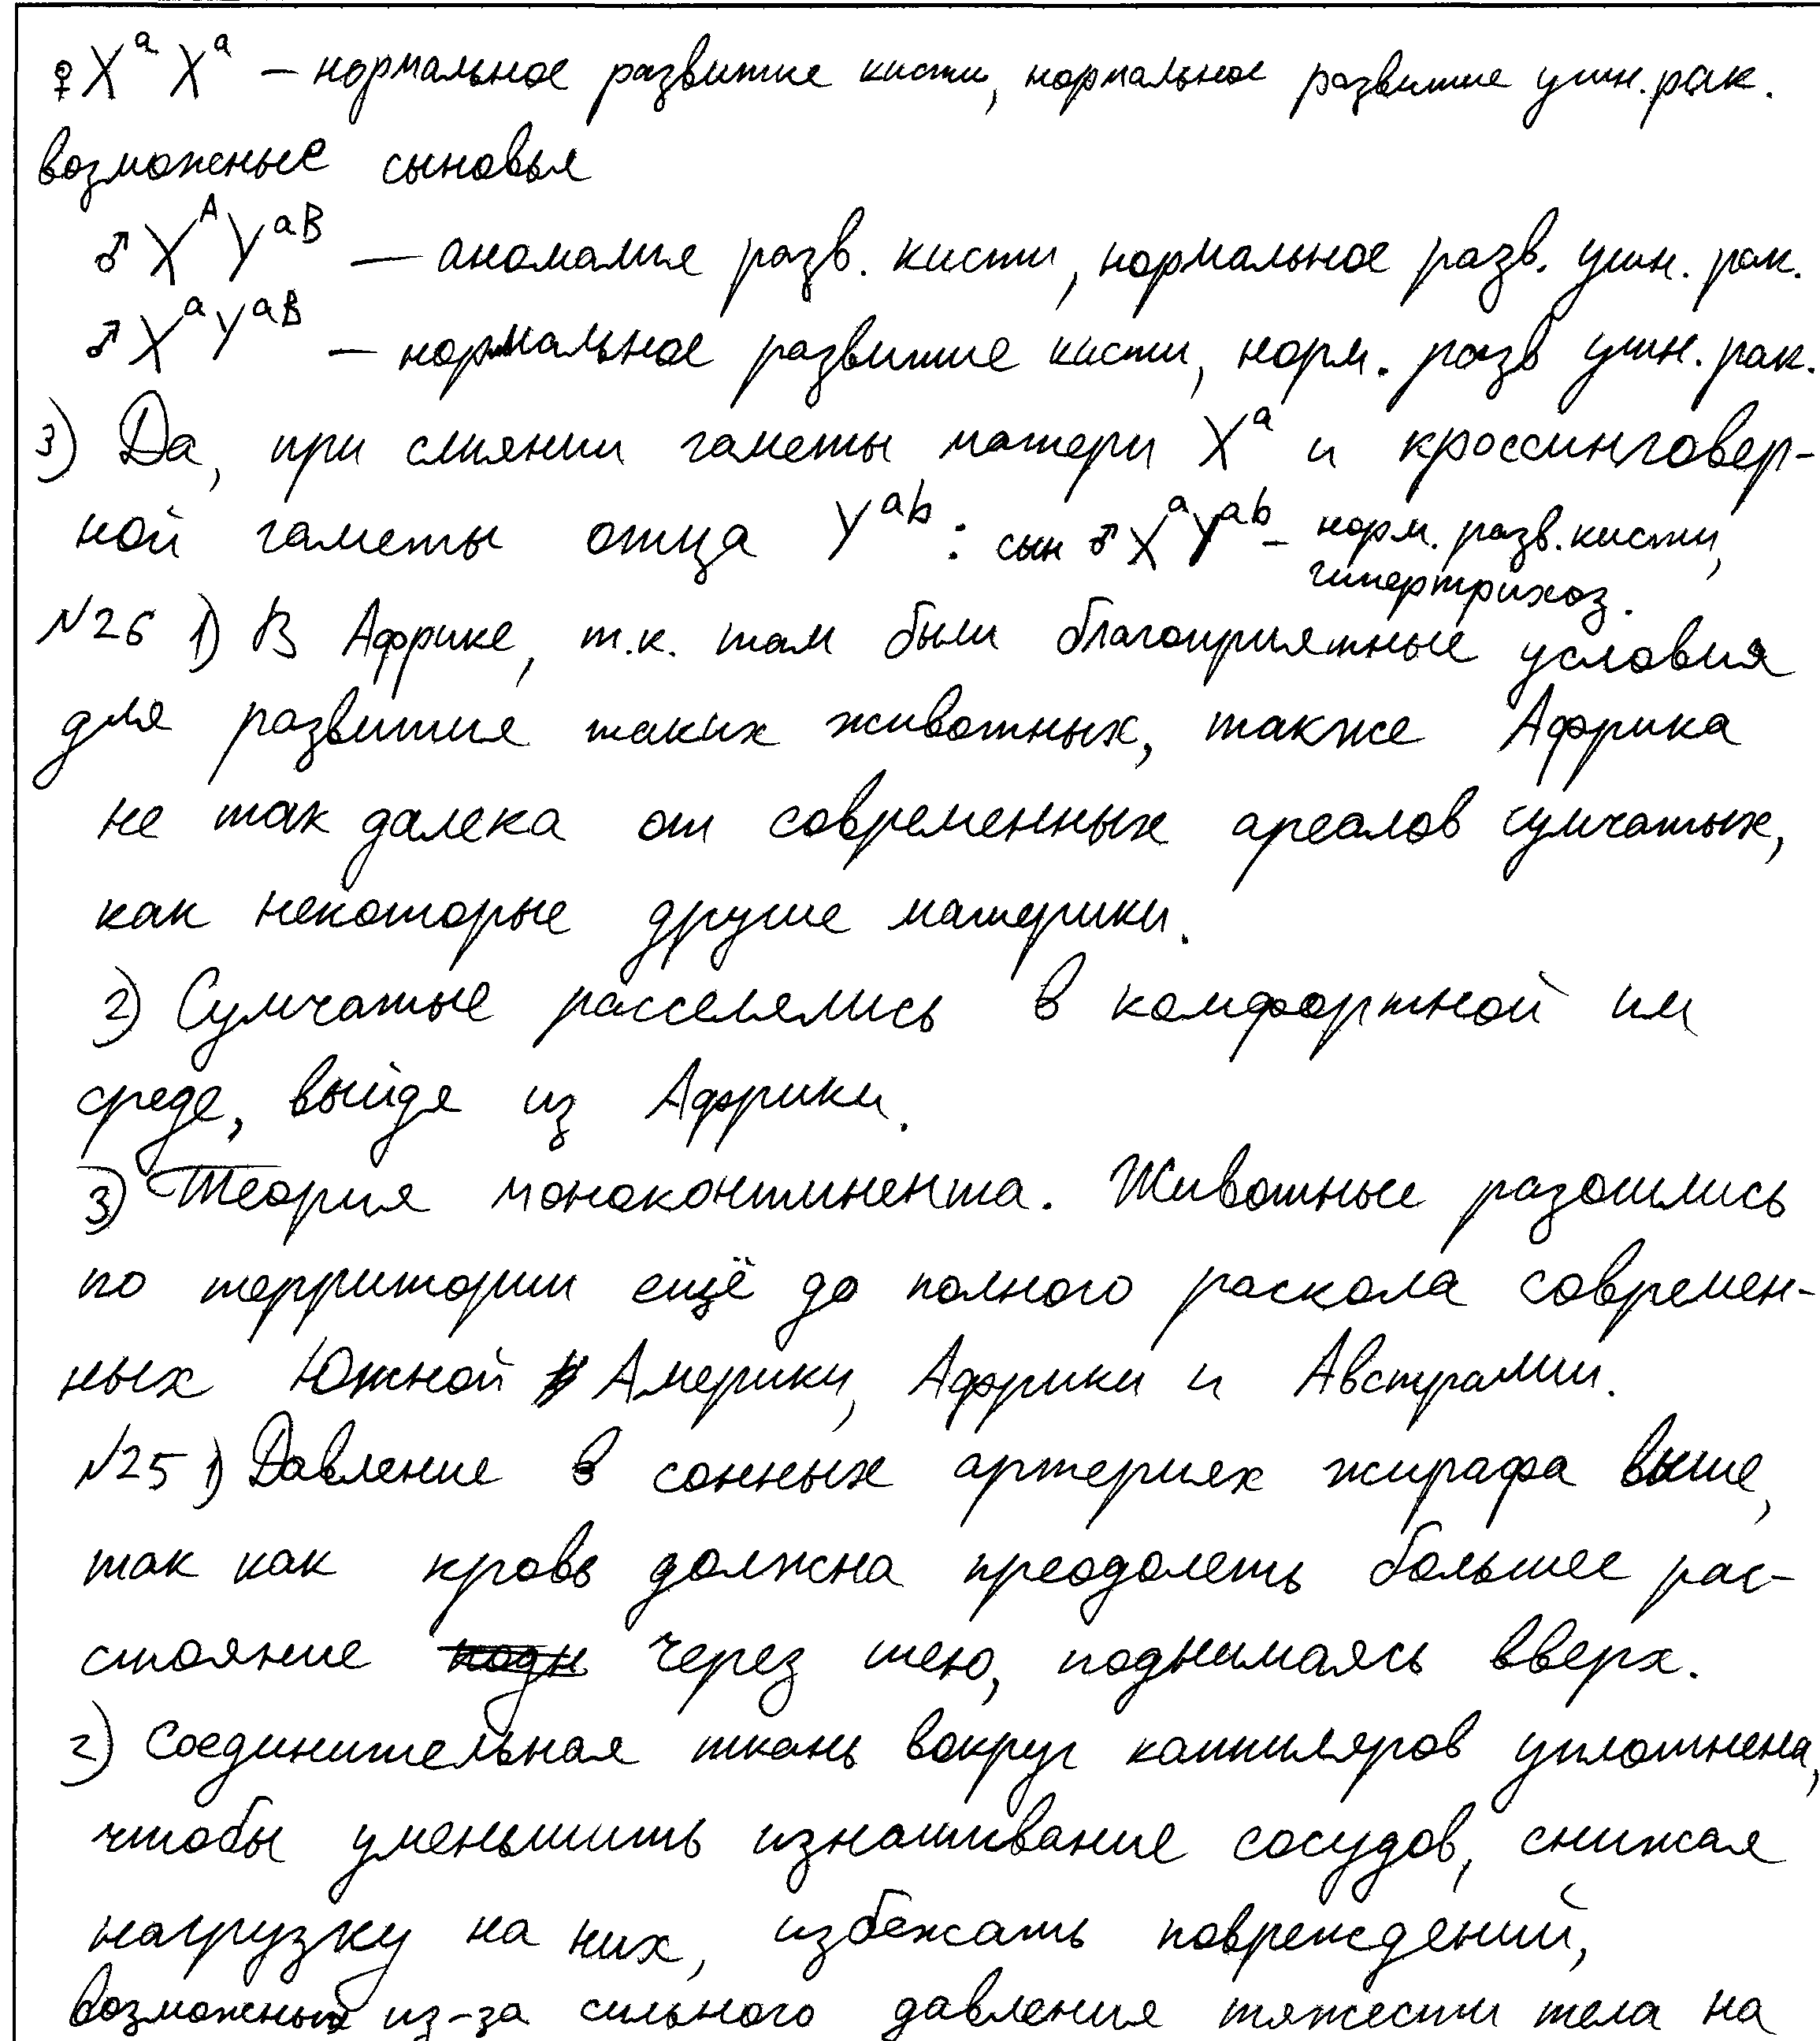 ♀ X^a X^a – нормальное развитие кисти, нормальное развитие ушн. рак.
возможные сыновья
♂ X^A Y^aB – аномалия разв. кисти, нормальное разв. ушн. рак.
♂ X^a Y^aB – нормальное развитие кисти, норм. разв ушн. рак.
3) Да, при слиянии гаметы матери X^a и кроссинговер-
ной гаметы отца Y^ab : сын ♂ X^a Y^ab – норм. разв. кисти,
гипертрихоз.
№26 1) В Африке, т.к. там были благоприятные условия
для развития таких животных, также Африка
не так далека от современных ареалов сумчатых,
как некоторые другие материки.
2) Сумчатые расселялись в комфортной им
среде, выйдя из Африки.
3) Теория моноконтинента. Животные разошлись
по территории ещё до полного раскола современ-
ных Южной Америки, Африки и Австралии.
№25 1) Давление в сонных артериях жирафа выше,
так как кровь должна преодолеть большее рас-
стояние через шею, поднимаясь вверх.
2) Соединительная ткань вокруг капиляров уплотнена,
чтобы уменьшить изнашивание сосудов, снижая
нагрузку на них, избежать повреждений,
возможных из-за сильного давления тяжести тела на